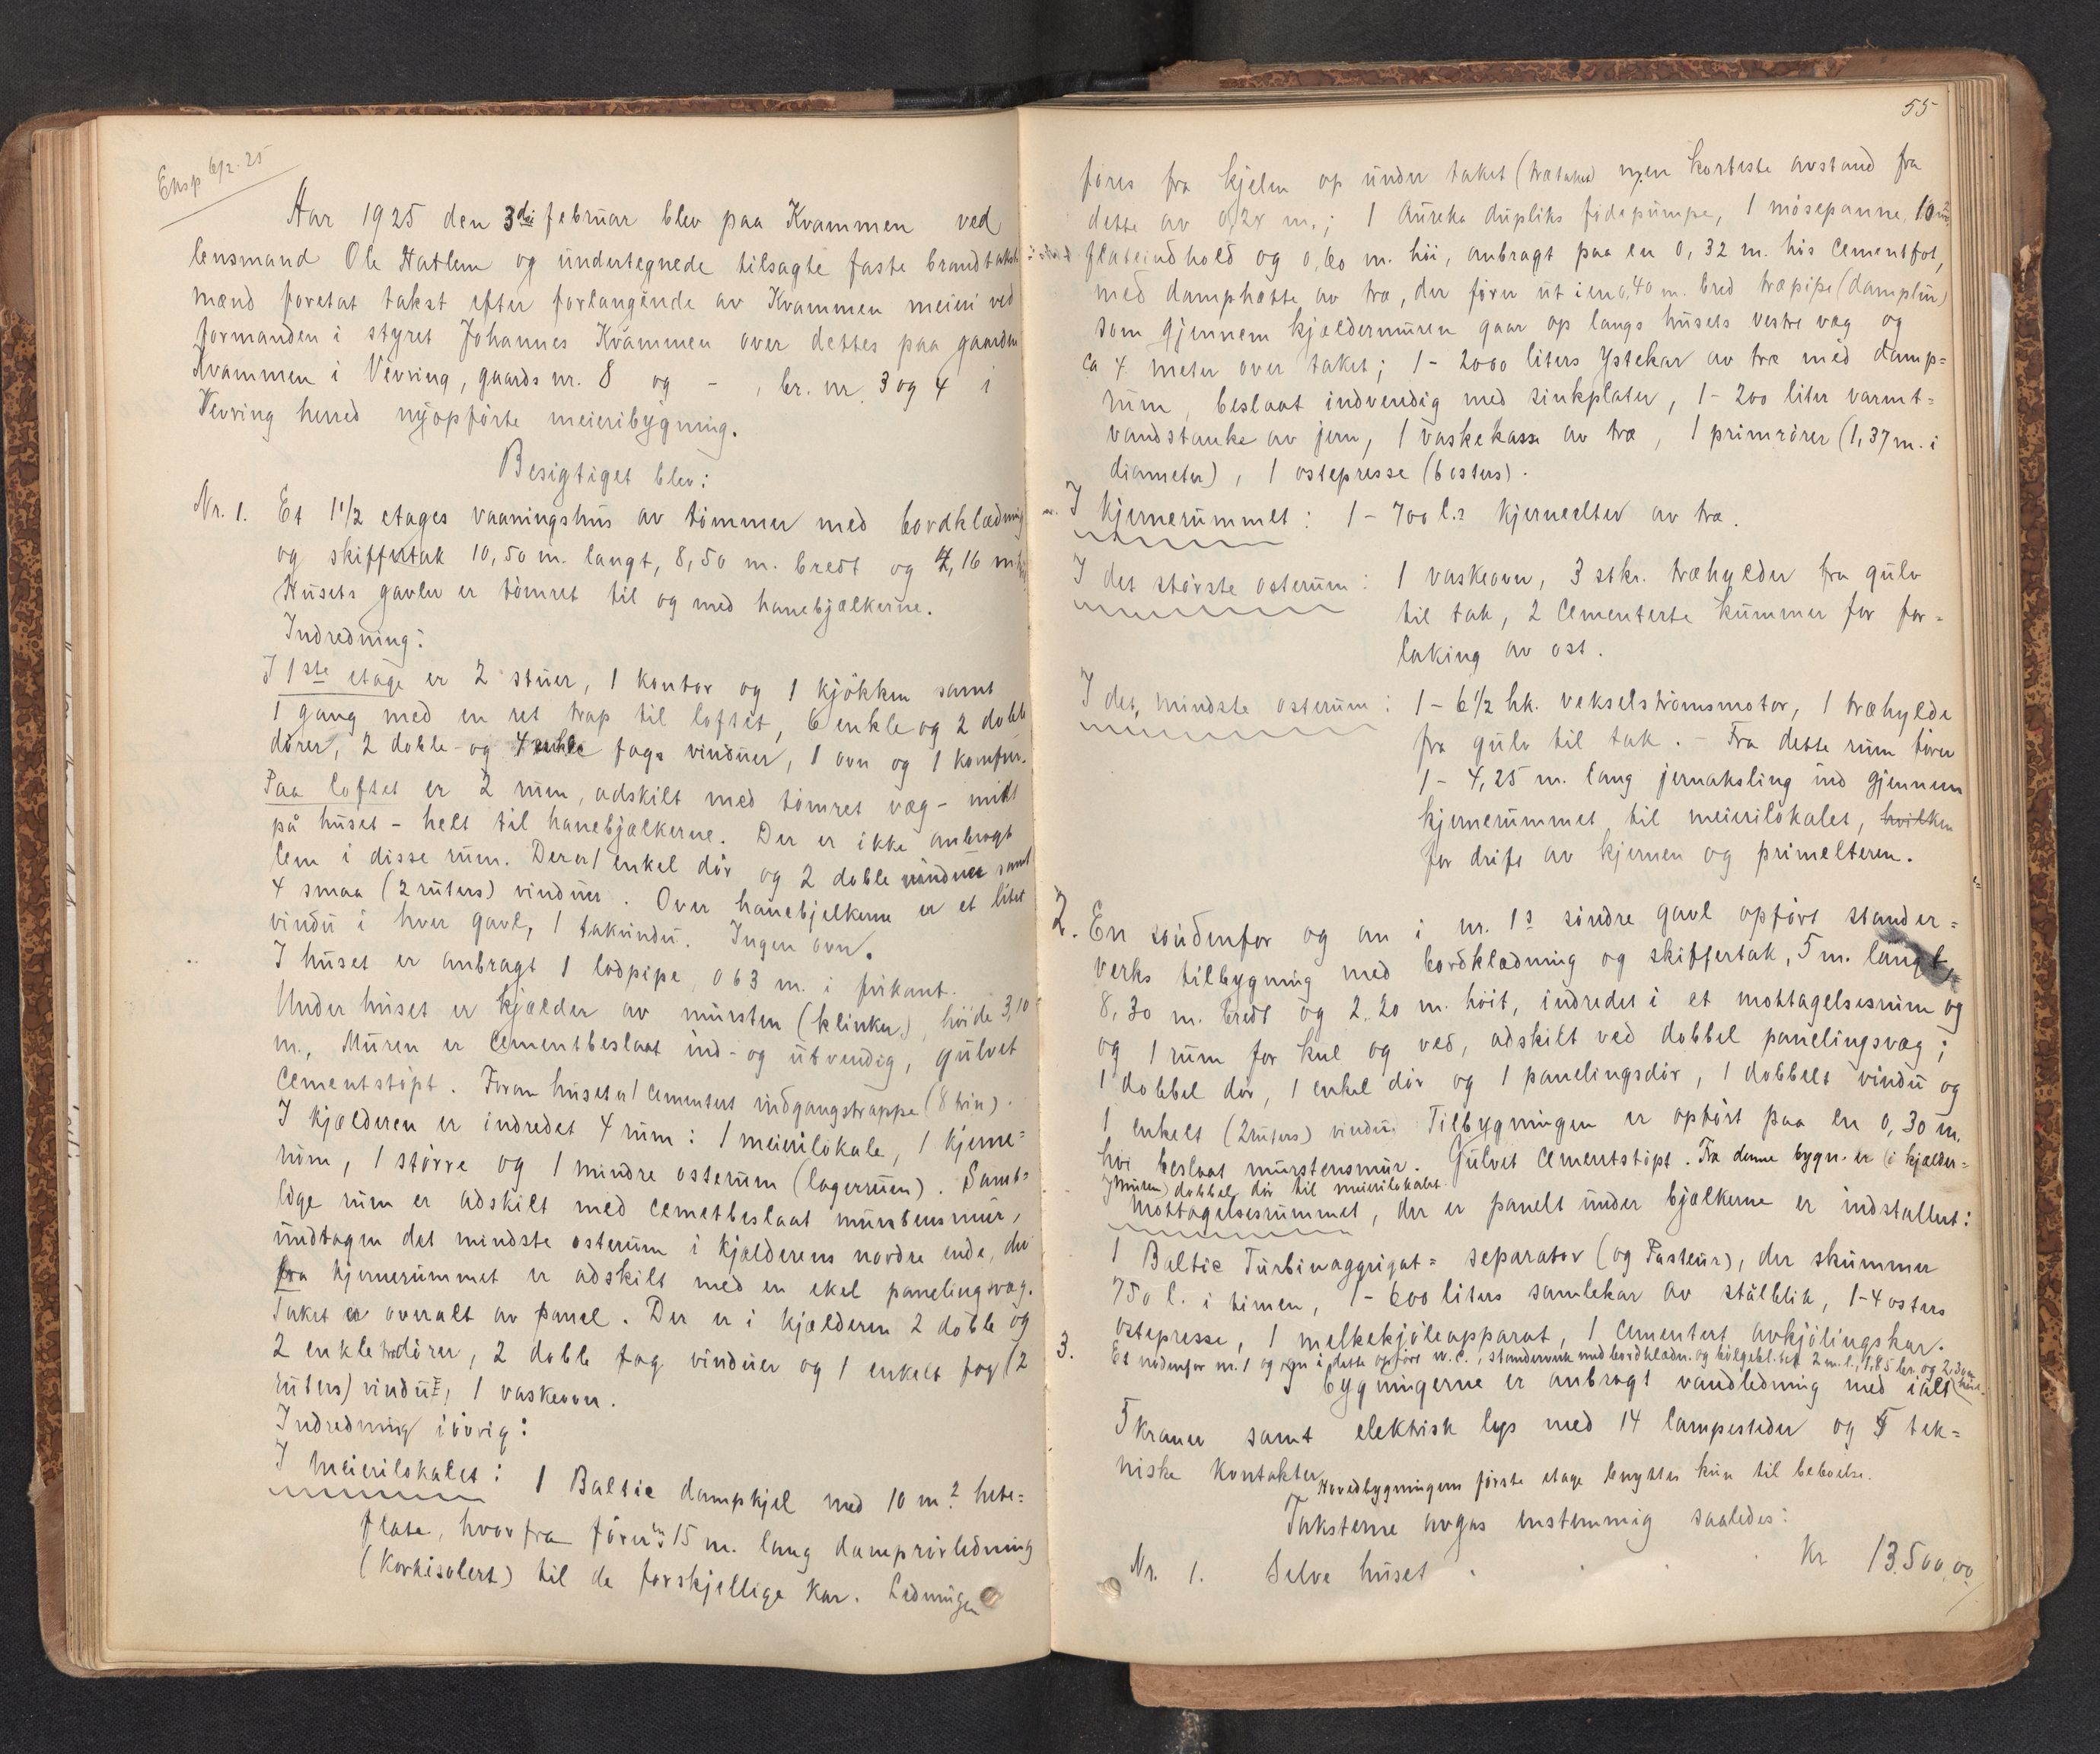 Eksp 6/2-25
Aar 1925 den 3die februar blev paa Kvammen ved
lensmand Ole Hatlem og undertegnede tilsagte faste brandtakst
mænd foretat takst efter forlangende av Kvammen meieri ved
formanden i styret Johannes Kvammen over dettes paa gaarden
Kvammen i Vevring, gaards nr. 8 og - , br. nr. 3 og 4 i
Vevring herred nyopførte meieribygning.
Besigtiget blev:
Nr. 1. Et 1 1/2 etages vaaningshus av tømmer med bordklædning
og skiffertak 10,50 m. langt, 8,50 m. bredt og 4,16 m.
Husets gavler er tømret til og med hanebjælkerne.
Indredning:
I 1ste etage er 2 stuer, 1 kontor og 1 kjøkken samt
1 gang med en ret trap til loftet, 6 enkle og 2 doble
dører, 2 doble- og 4 enkle fags vinduer, 1 ovn og 1 komfur.
Paa loftet er 2 rum, adskilt med tømret væg - midt
på huset - helt til hanebjælkerne. Der er ikke anbragt
lem i disse rum. Der er 1 enkel dør og 2 doble vinduer samt
4 smaa (2 ruters) vinduer. Over hanebjelkerne er et litet
vindu i hver gavl, 1 takvindu. Ingen ovn.
I huset er anbragt 1 lodpipe 0 63 m. i firkant.
Under huset er kjælder av mursten (klinker), høide 3,10
m., Muren er Cementbeslaat ind- og utvendig, gulvet
Cementstøpt. Foran huset er 1 cementert indgangstrappe (8 trin).
I kjælderen er indredet 4 rum: 1 meierilokale, 1 kjerne=
rum, 1 større og 1 mindre osterum (lagerrum). Samt=
lige rum er adskilt med cemetbeslaat murstensmur,
undtagen det mindste osterum i kjælderens nordre ende, der
fra kjernerummet er adskilt med en ekel panelingsvæg.
Taket er overalt av panel. Der er i kjælderen 2 doble og
2 enkle trædører, 2 doble fag vinduer og 1 enkelt fag (2
ruters) vindu, 1 vaskeovn.
Indredning iøvrig:
I meierilokalet: 1 Baltic dampkjel med 10 m.2 hete=
flate, hvorfra fører en 15 m. lang damprørledning
(korkisolert) til de forskjellige kar. Ledningen
55
føres fra kjelen op under taket (trætaket) men korteste avstand fra
dette av 0,28 m.; 1 Aureka dupliks fødepumpe, 1 mosepanne, 10 m2
flateindhold og 0,60 m. høi, anbragt paa en 0,32 m. høi Cementfot,
med damphætte av træ, der fører ut i en 0,40 m. bred træpipe (damplur)
som gjennem kjældermuren gaar op langs husets vestre væg og
ca 4 meter over taket; 1 - 2000 liters ystekar av træ med damp=
rum, beslaat indvendig med sinkplater, 1 - 200 liter varmt=
vandstanke av jern, 1 vaskekasse av træ, 1 primrører (1,37 m. i
diameter), 1 ostepresse (6 osters).
I kjernerummet: 1 - 700 l.s kjerneelter av træ.
I det største osterum: 1 vaskeovn, 3 stkr. træhylder fra gulv
til tak, 2 Cementerte kummer for for=
laking av ost.
I det mindste osterum: 1 - 6 1/2 hk. vekselstrømsmotor, 1 træhylde
fra gulv til tak. - Fra dette rum fører
1 - 4,25 m. lang jernaksling ind gjennem
kjernerummet til meierilokalet, hvilken
for drift av kjernen og primelteren.
2. En søndenfor og an i nr. 1s søndre gavl opført stander=
verks tilbygning med bordklædning og skiffertak, 5 m. langt,
8,30 m. bredt og 2,20 m. høit, indredet i et mottagelsesrum og
og 1 rum for kul og ved, adskilt ved dobbel panelingsvæg;
1 dobbel dør, 1 enkel dør og 1 panelingsdør, 1 dobbelt vindu og
1 enkelt (2 ruters) vindu. Tilbygningen er opført paa en 0,30 m.
høi beslaat murstensmur. Gulvet Cementstøpt. Fra denne bygn. er (i kjælder=
muren) dobbel dør til meierilokalet.
I Mottagelsesrummet, der er panelt under bjælkerne er indstallert:
1 Baltic Turbinaggrigat= separator (og Pasteur), der skummer
750 l. i timen, 1 - 600 liters samlekar av stålblik, 1 - 4 osters
ostepresse, 1 melkekjøleapparat, 1 cementert avkjølingskar.
3. Et nordenfor nr. 1 og i dette opført w.c., standerverk med bordklædn. og bølgebl.tak 2 m. l., 1,85 br. og 2,30 m høit.
I bygningerne er anbragt vandledning med ialt
5 kraner samt elektrisk lys med 14 lampesteder og 5 tek=
niske kontakter. Hovedbygningens første etage benyttes kun til beboelse.
Taksterne avgas enstemmig saaledes:
Nr. 1. Selve huset . . . . Kr 13.500,00